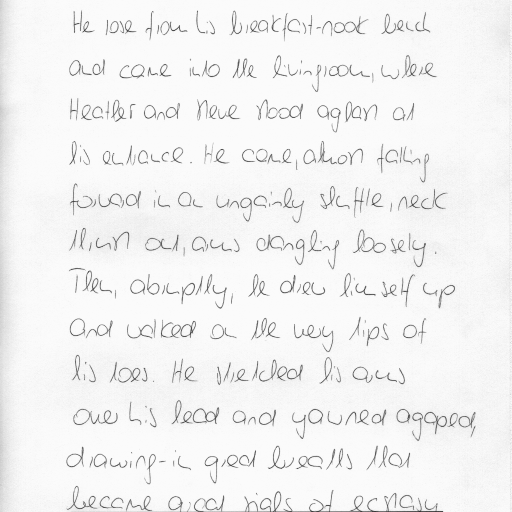 He rose from his breakfast-nook bench
and came into the livingroom, where
Heather and Steve stood aghast at
his entrance. He came, almost falling
forward in an ungainly shuffle, neck
thrust out, arms dangling loosely.
Then, abruptly, he drew himself up
and walked on the very tips of
his toes. He stretched his arms
over his head and yawned agaped,
drawing-in great breaths that
became great sighs of ecstasy